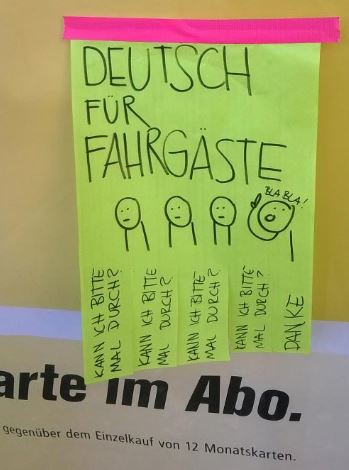 DEUTSCH
FÜR
FAHRGÄSTE
BLA BLA!
KANN ICH BITTE
MAL DURCH?
KANN ICH BITTE
MAL DURCH?
KANN ICH BITTE
MAL DURCH?
KANN ICH BITTE
MAL DURCH?
DANKE
arte im Abo.
gegenüber dem Einzelkauf von 12 Monatskarten.